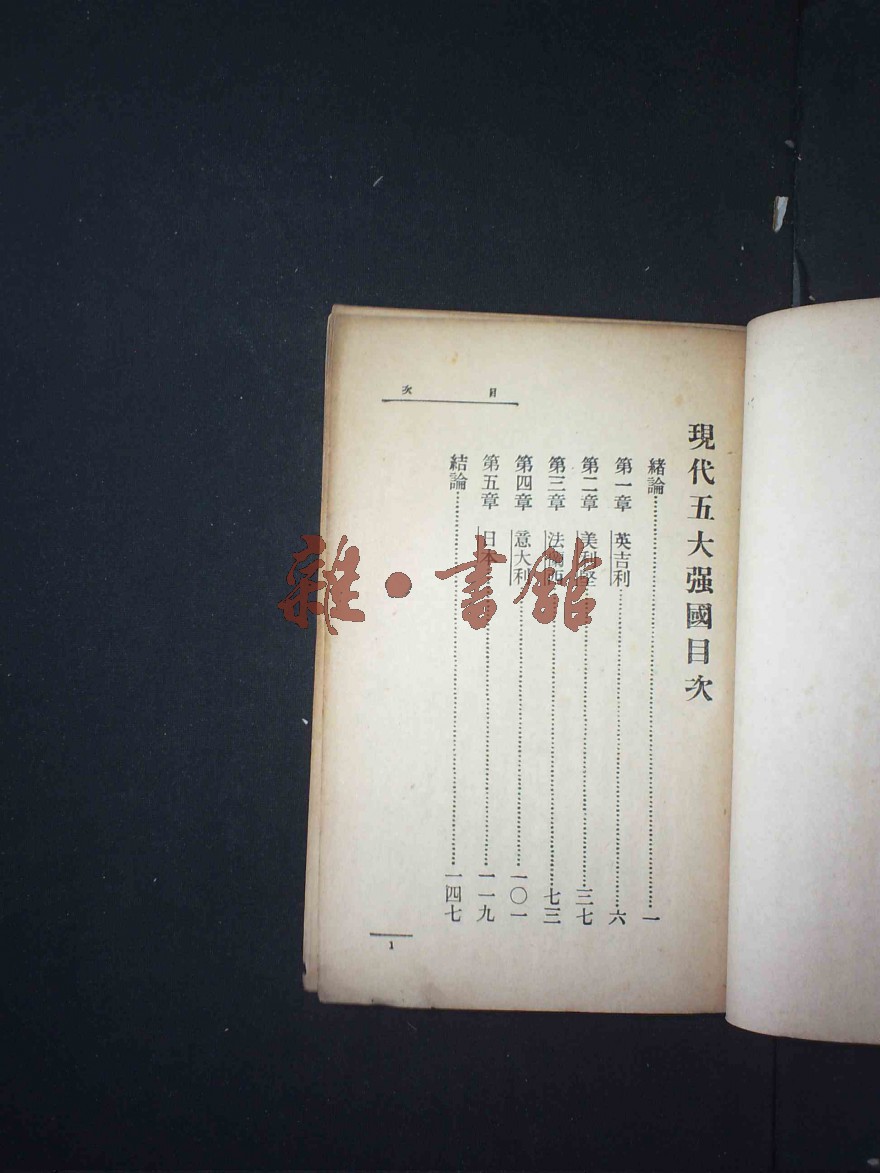 現代五大强國目次
目次
緒論……一
第一章 英吉利……六
第二章 美利堅……三七
第三章 法蘭西……七三
第四章 意大利……一〇一
第五章 日本……一一九
結論……一四七
1
雜·書館